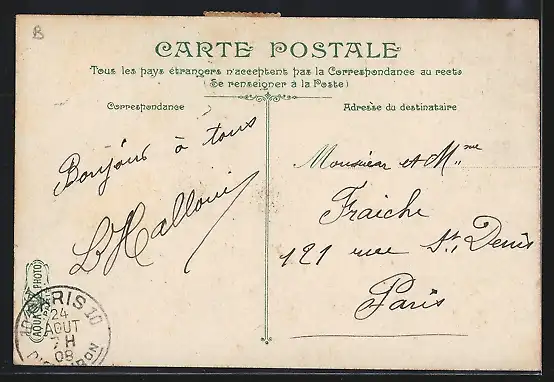 B
CARTE POSTALE
Tous les pays étrangers n'acceptent pas la Correspondance au recto
(Se renseigner à la Poste)
Correspondance
Adresse du destinataire
Bonjour à tous
Monsieur et Mme
Fraiche
121 rue St. Denis
Paris
AQUA PHOTO
PARIS 10
24
AOUT
7 H
08